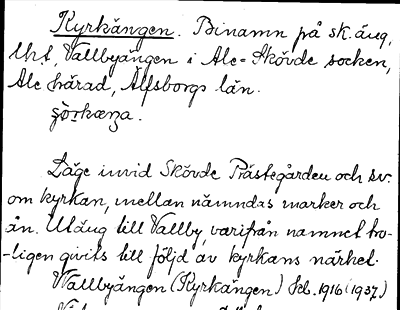 Kyrkängen. Binamn på sk. äng,
Vallbyängen i Ale-Skövde socken,
Ale härad, Älfsborgs län.
Läge invid Skövde Prästegården och sv.
om kyrkan, mellan nämndas marker och
ån. Utäng till Vallby, varifrån namnet tro-
-ligen givits till följd av kyrkans närhet.
Wallbyängen (Kyrkängen) 1916 (1937)